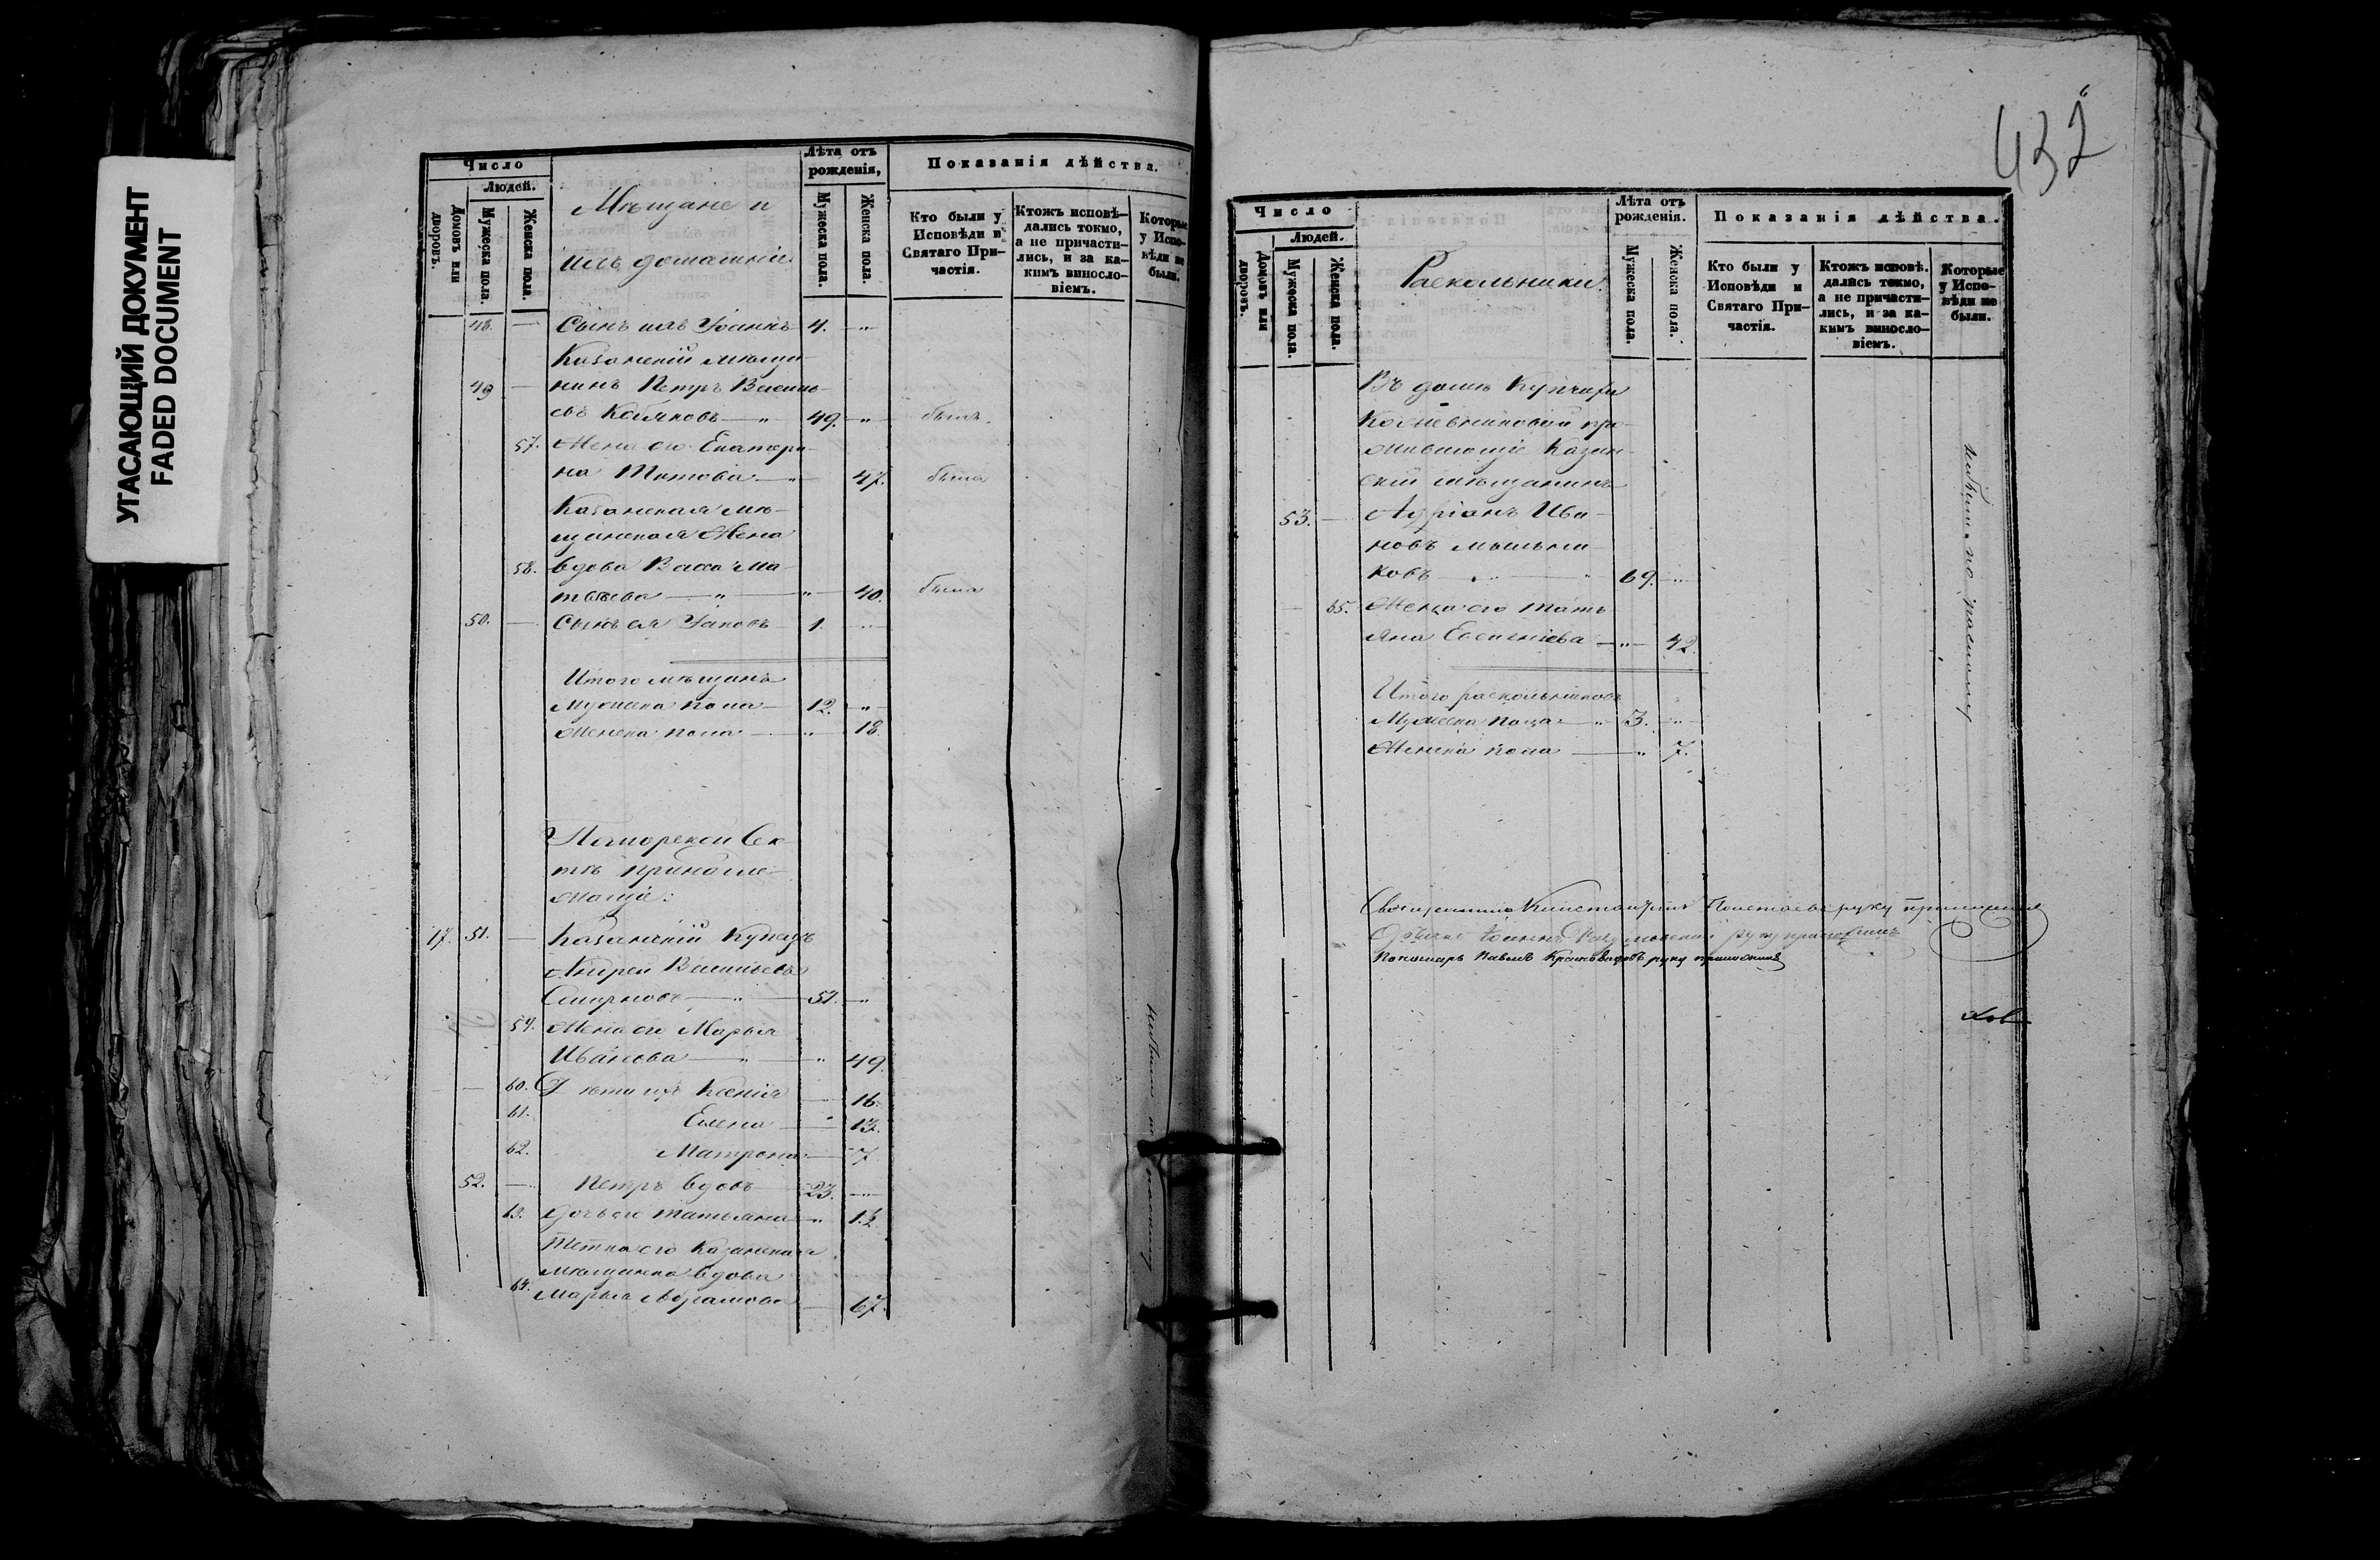 УГАСАЮЩИЙ ДОКУМЕНТ
FADED DOCUMENT
Число
Людей.
Домовъ или дворовъ.
Мужеска пола.
Женска пола.
Мѣщане и
ихъ домашніе
Лѣта отъ рожденія,
Мужеска пола.
Женска пола.
Показанія дѣйства.
Кто были у Исповѣди и Святаго Причастія.
Ктожъ исповѣдались токмо, а не причастились, и за какимъ винословіемъ.
Которые у Исповѣди не были.
48. — Сынъ ихъ Іоаннъ 4. — „ —
Казанскій мѣща
49 — нинъ Петръ Василь-
евъ — „ 49. — „ — былъ.
57. Жена его Екатери-
на Титова — „ — 47. была
Казанская мѣ-
щанская Жена
58. вдова Васса Ма-
твѣева — „ — „ — 40. была
50. — Сынъ ея Іаковъ 1. — „ —
Итого мѣщанъ
Мужеска пола — 12. — „ —
Женска пола — „ — 18.
Поморской Сек-
тѣ принадле-
жащіе:
17. 51. — Казанскій Купецъ
Андрей Васильевъ
Смирновъ — „ — 51. — „
59. Жена его Марья
Иванова — „ — „ 49.
60. Дѣти ихъ Ксенія — 16.
61. Елена — 13.
62. Матрона — 7
52. — Петръ вдовъ 23. — „ —
63. Дочь его Татьяна — „
Тетка его Казанская
мѣщанка вдова
64. Марья Абрамова — 67.
небыли по расколу
432
Число
Людей.
Домовъ или дворовъ.
Мужеска пола.
Женска пола.
Раскольники.
Лѣта отъ рожденія.
Мужеска пола.
Женска пола.
Показанія дѣйства.
Кто были у Исповѣди и Святаго Причастія.
Ктожъ исповѣдались токмо, а не причастились, и за какимъ винословіемъ.
Которые у Исповѣди не были.
Въ домѣ Купчихи
Кожевниковой про-
живающіе Казан-
скій мѣщанинъ
53. — Адріанъ Ива-
новъ Мыльни-
ковъ — „ — „ 69. — „
— 65. Жена его Тать
яна — „ — 42.
небыли по расколу
Итого раскольниковъ
Мужеска пола — „ 3. — „ —
Женска пола — „ 7.
Священникъ Константинъ руку приложилъ
Іоаннъ руку приложилъ
Пономарь Павелъ руку приложилъ